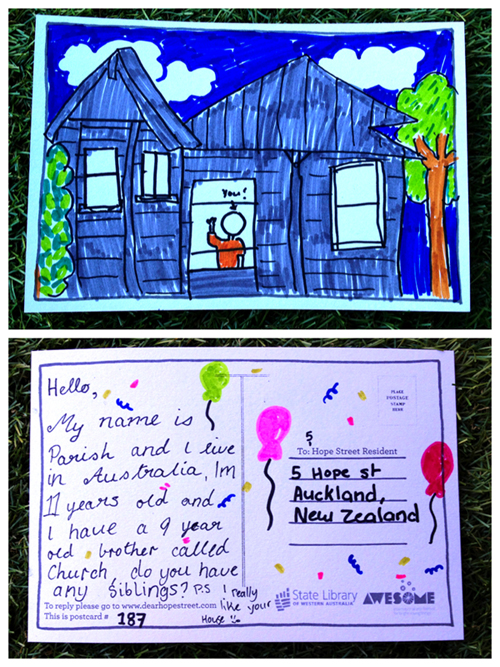 You!
Hello,
My name is
Parish and I live
in Australia, Im
11 years old and
I have a 9 year
old brother called
Church, do you have
any Siblings? P.S I really
like your
House
To reply please go to www.dearhopestreet.com
This is postcard # 187
PLACE
POSTAGE
STAMP
HERE
5
To: Hope Street Resident
5 Hope st
Auckland,
New Zealand
State Library
OF WESTERN AUSTRALIA
AWESOME